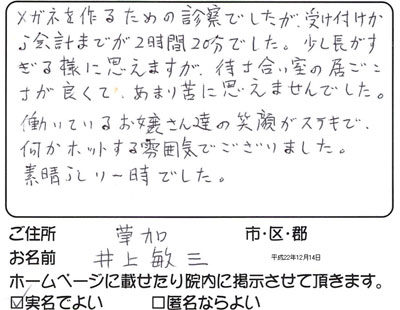 メガネを作るための診察でしたが、受け付けか
ら会計までが2時間20分でした。少し長がす
ぎる様に思えますが、待さ合い室の居ごこ
さが良くて、あまり苦に思えませんでした。
働いているお嬢さん達の笑顔がステキで、
何かホットする雰囲気でございました。
素晴らしい一時でした。
ご住所 草加 市・区・郡
お名前 井上敏三 平成22年12月14日
ホームページに載せたり院内に掲示させて頂きます。
☑実名でよい □匿名ならよい